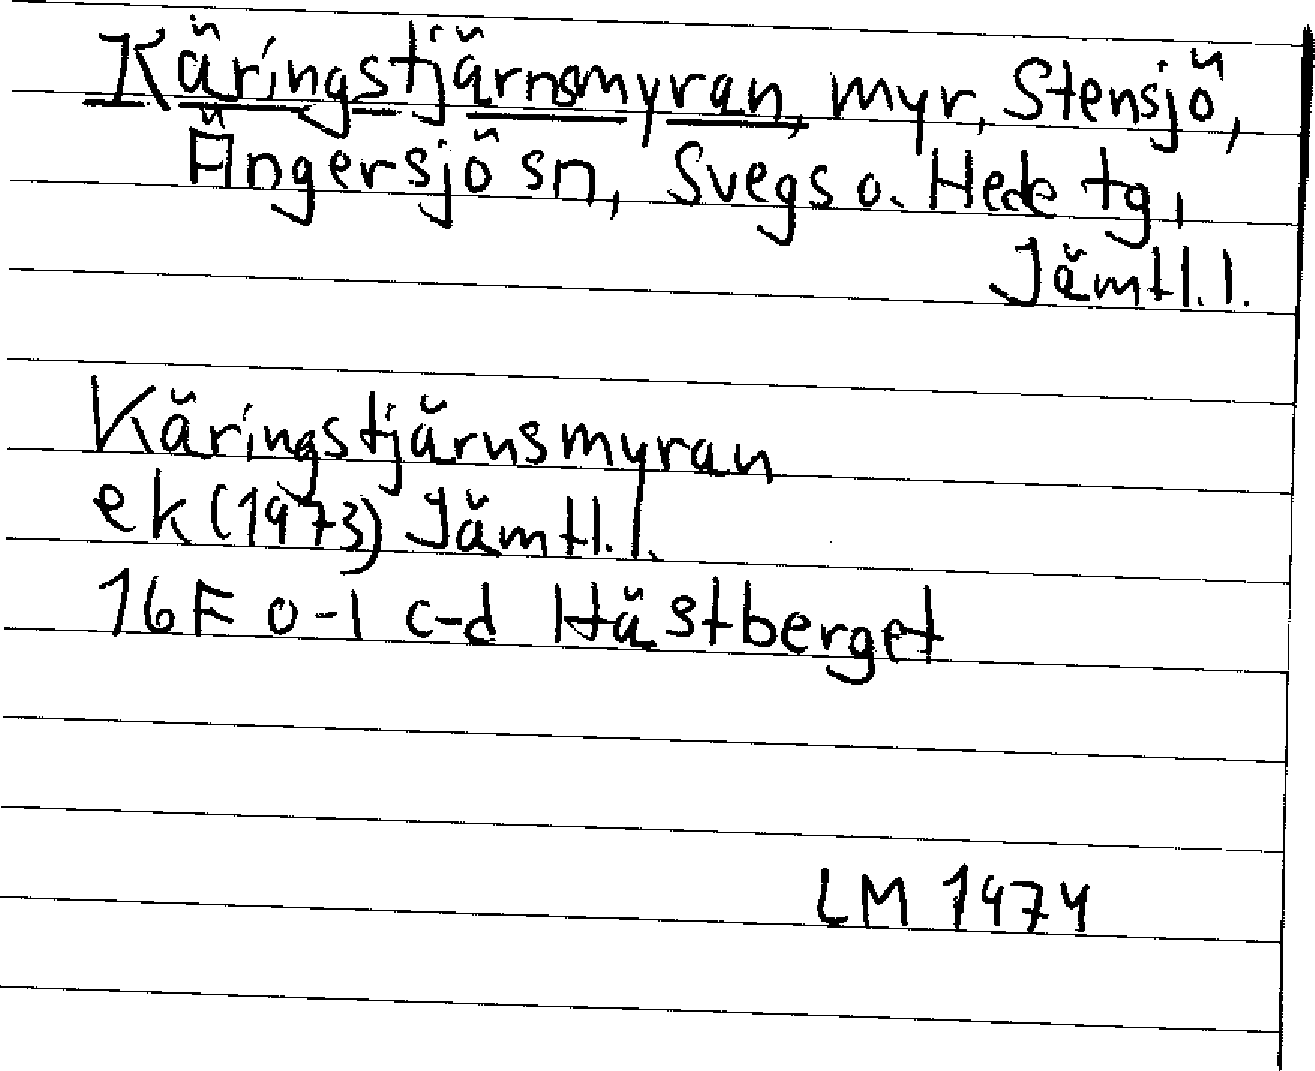 Käringstjärnsmyran, myr, Stensjö,
Ängersjö sn, Svegs o. Hede tg,
Jämtl.l.
Käringstjärnsmyran
ek (1973) Jämtl.l.
16F 0-1 c-d Hästberget
LM 1974